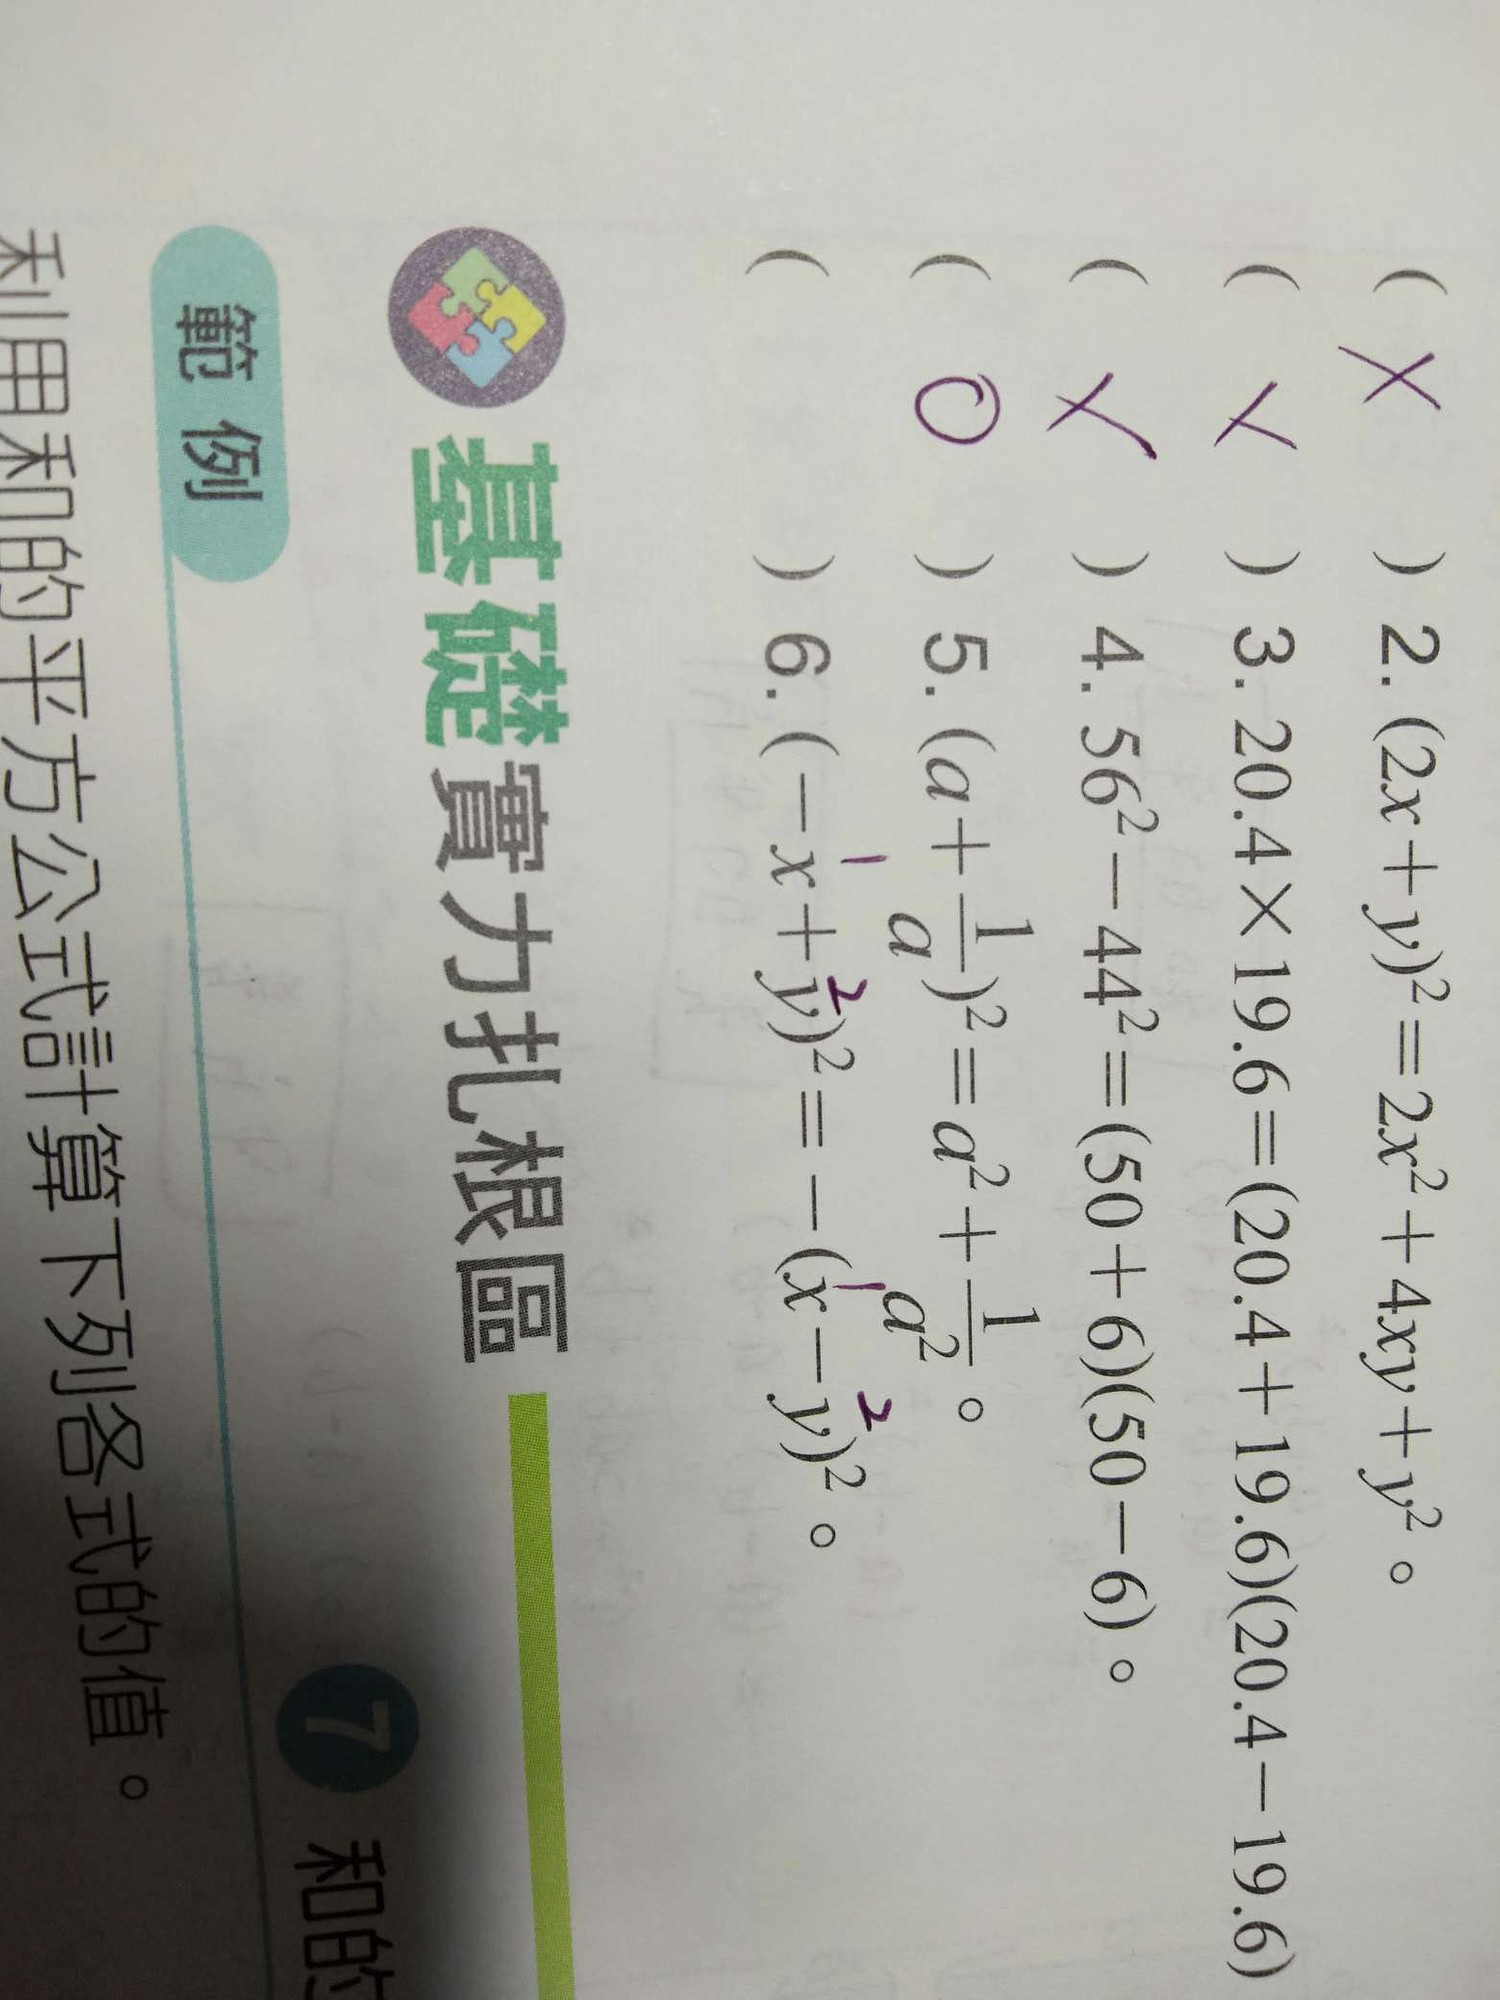 ( X ) 2. (2x+y)²=2x²+4xy+y²。
( X ) 3. 20.4×19.6=(20.4+19.6)(20.4−19.6)
( X ) 4. 56²−44²=(50+6)(50−6)。
( O ) 5. (a+1/a)²=a²+1/a²。
1 2 1 2
( ) 6. (−x+y)²=−(x−y)²。
基礎實力扎根區
7 和的
範例
利用和的平方公式計算下列各式的值。